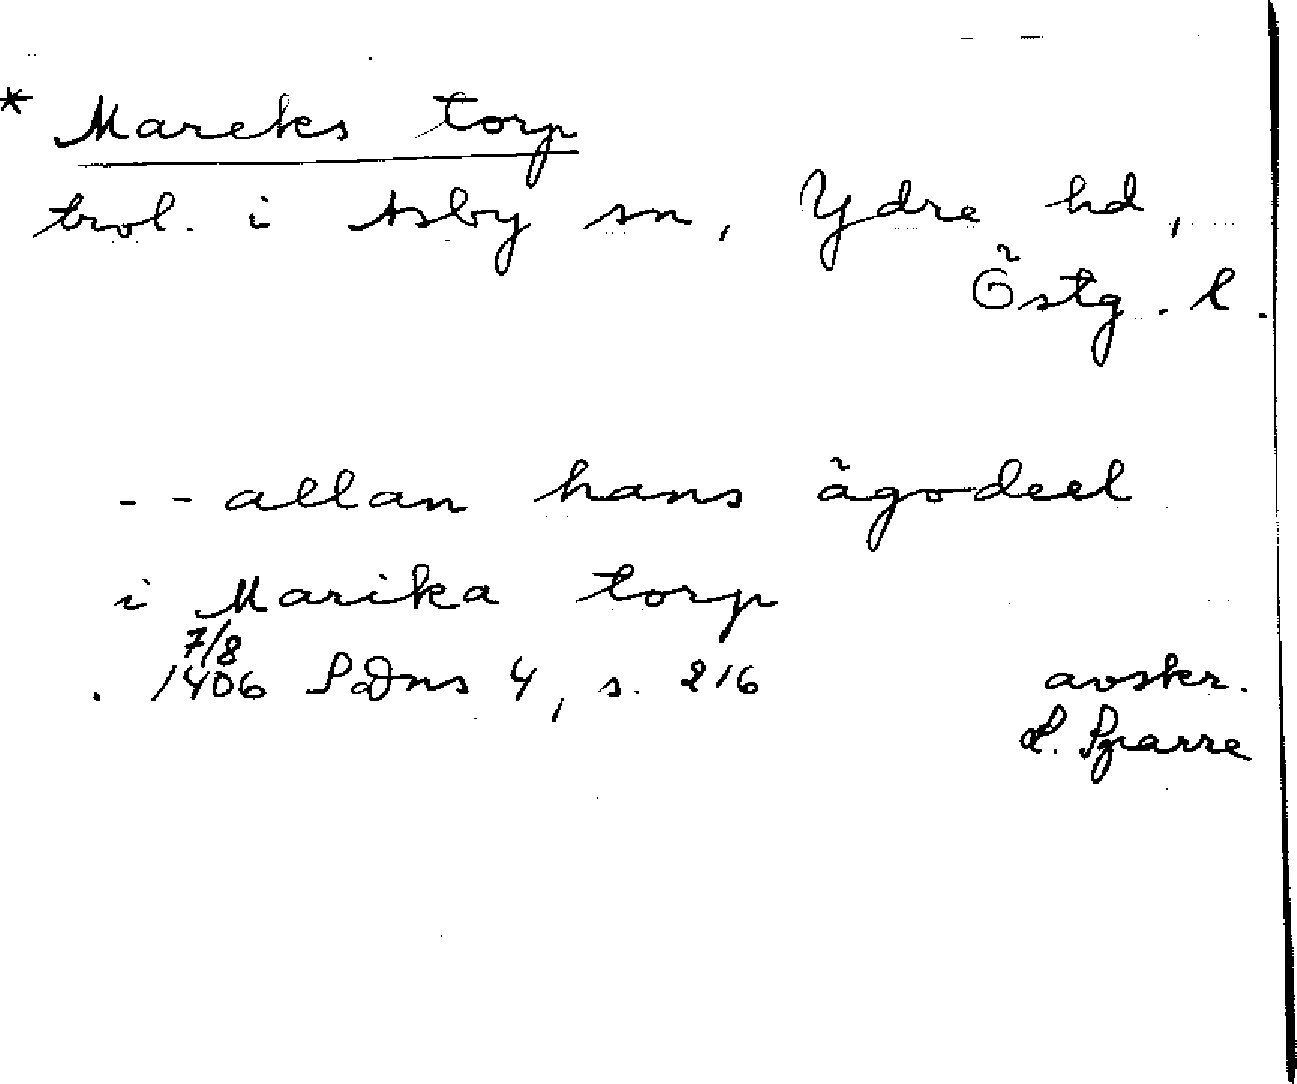 * Mareks torp
trol. i Asby sn, Ydre hd,
Östg. l.
-- allan hans ägodeel
i Marika torp
7/8
1406 SDns 4, s. 216
avskr.
L. Sparre